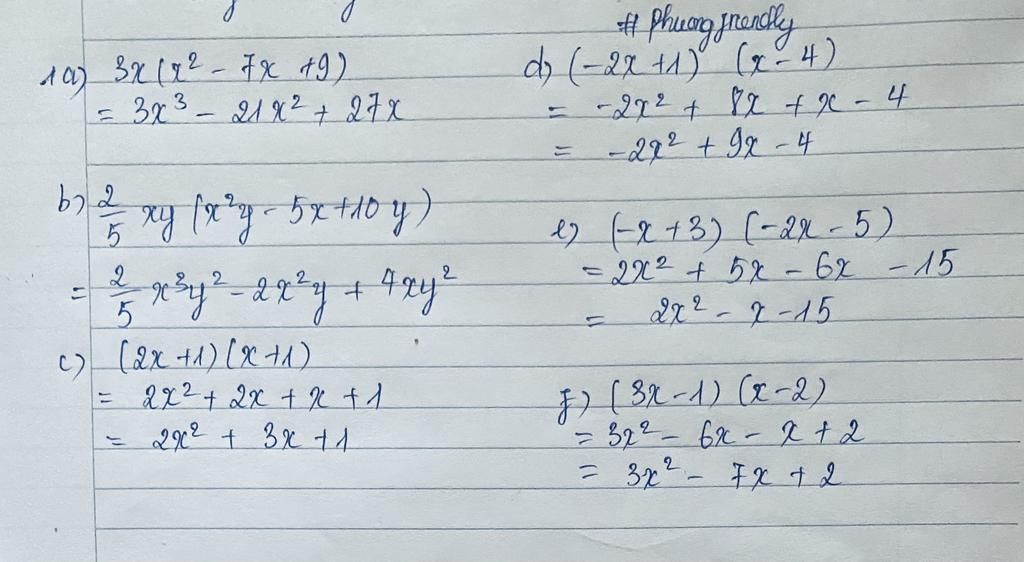 # Phuongfrendly
1a) 3x(x² - 7x +9)
= 3x³ - 21x² + 27x
b) 2/5 xy (x²y - 5x+10y)
= 2/5 x³y² - 2x²y + 4xy²
c) (2x+1)(x+1)
= 2x² + 2x + x + 1
= 2x² + 3x + 1
d) (-2x+1) (x-4)
= -2x² + 8x + x - 4
= -2x² + 9x - 4
e) (-x+3) (-2x-5)
= 2x² + 5x - 6x - 15
= 2x² - x - 15
f) (3x-1) (x-2)
= 3x² - 6x - x + 2
= 3x² - 7x + 2